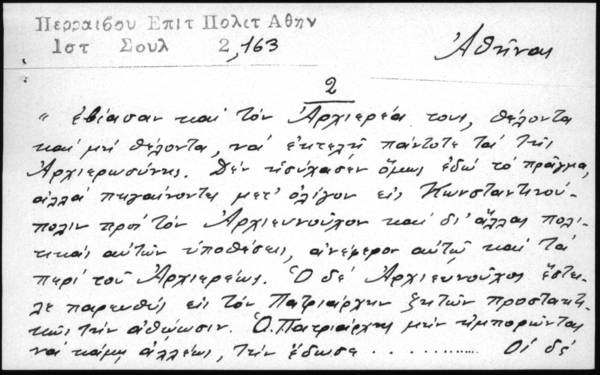 Περραιβου Επιτ Πολιτ Αθην
Ιστ Σουλ 2,163
Ἀθῆναι
2
" ἐβίασαν καὶ τὸν Ἀρχιερέα τους, θέλοντα
καὶ μὴ θέλοντα, νὰ ἐκτελῇ πάντοτε τὰ τῆς
Ἀρχιερωσύνης. Δὲν ἡσύχασεν ὅμως ἐδῶ τὸ πρᾶγμα,
ἀλλὰ πηγαίνοντες μετ' ὀλίγον εἰς Κωνσταντινού-
πολιν πρὸς τὸν Ἀρχιευνοῦχον καὶ δι' ἄλλας πολι-
τικὰς αὐτῶν ὑποθέσεις, ἀνέφερον αὐτῷ καὶ τὰ
περὶ τοῦ Ἀρχιερέως. Ὁ δὲ Ἀρχιευνοῦχος ἔστει-
λε παρευθὺς εἰς τὸν Πατριάρχην ζητῶν προστακτι-
κῶς τὴν ἀθώωσιν. Ὁ Πατριάρχης μὴν ἠμπορῶντας
νὰ κάμῃ ἀλλέως, τὴν ἔδωσε ............ Οἱ δὲ